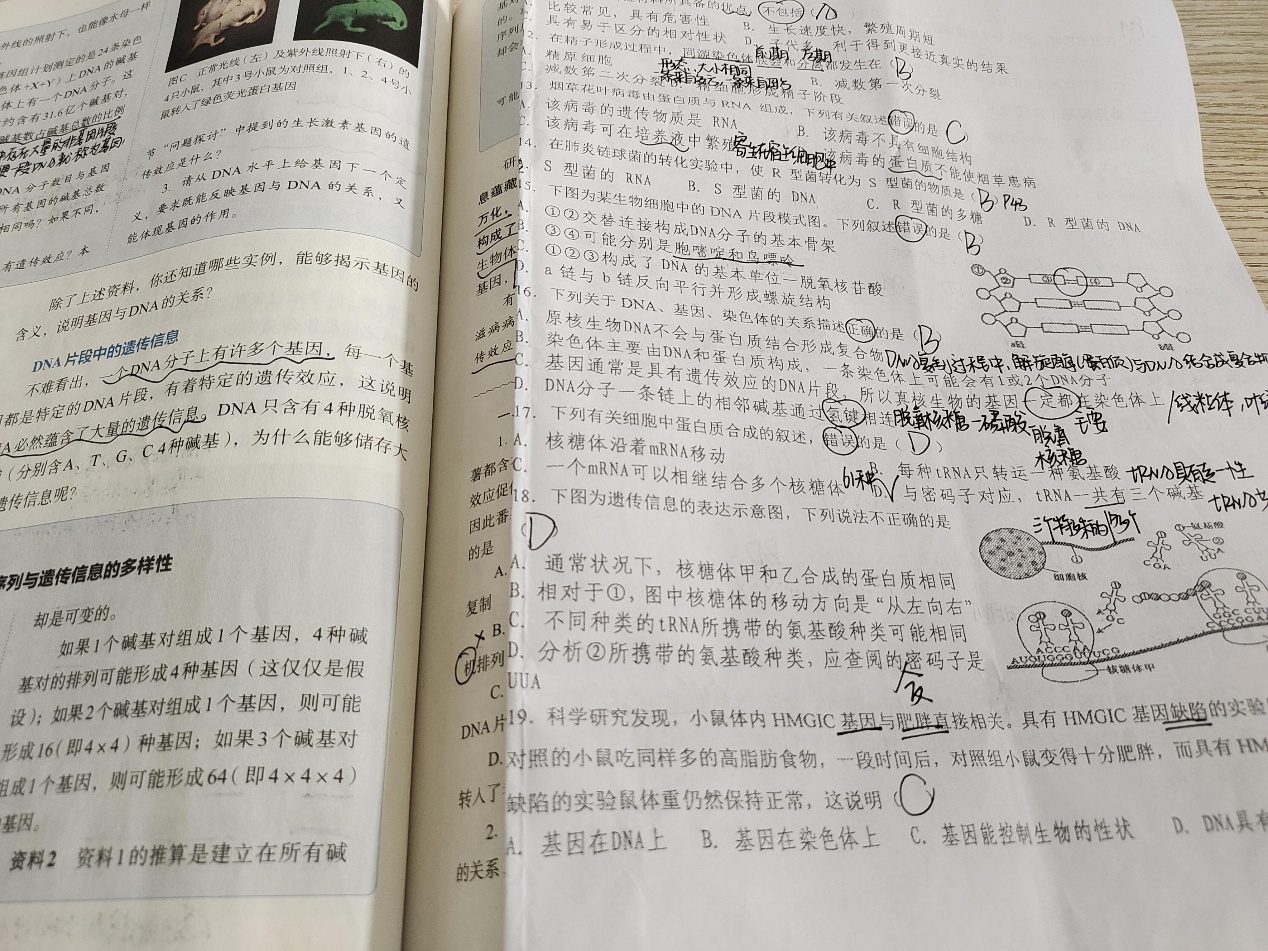 外线的照射下，也能像水母一样
基因组计划测定的是24条染色
色体+X+Y）上DNA的碱基
体上有一个DNA分子。这
约含有31.6亿个碱基对，
碱基数占碱基总数的比例
DNA 分子数目与基因
所有基因的碱基总数
相同吗？如果不同，
有遗传效应？本
图C 正常光线（左）及紫外线照射下（右）的
4只小鼠，其中3号小鼠为对照组，1、2、4号小
鼠转入了绿色荧光蛋白基因
节“问题探讨”中提到的生长激素基因的遗
传效应是什么？
3. 请从 DNA 水平上给基因下一个定
义，要求既能反映基因与 DNA 的关系，又
能体现基因的作用。
除了上述资料，你还知道哪些实例，能够揭示基因的
含义，说明基因与DNA的关系？
DNA片段中的遗传信息
不难看出，一个DNA分子上有许多个基因，每一个基
因都是特定的DNA片段，有着特定的遗传效应，这说明
A必然蕴含了大量的遗传信息。DNA只含有4种脱氧核
（分别含A、T、G、C 4种碱基），为什么能够储存大
遗传信息呢？
序列与遗传信息的多样性
却是可变的。
如果1个碱基对组成1个基因，4种碱
基对的排列可能形成4种基因（这仅仅是假
设）；如果2个碱基对组成1个基因，则可能
形成16（即4×4）种基因；如果3个碱基对
组成1个基因，则可能形成64（即4×4×4）
基因。
资料2 资料1的推算是建立在所有碱
可能
研
息蕴藏
万化，
构成了
生物体
基因，
有
滋病病
传效应
1.
薯都含
效应促
因此番
的是
A.
复制
× B.
机排列
C.
DNA片
D.
转入了
2.
的关系
不包括
比较常见，具有危害性 B. 生长速度快，繁殖周期短
具有易于区分的相对性状 D. 子代多，利于得到更接近真实的结果
12. 在精子形成过程中，同源染色体联会和分离都发生在（B
前期 后期
精原细胞 B. 减数第一次分裂
形态、大小相同
减数第二次分裂
13. 烟草花叶病毒由蛋白质与 RNA 组成，下列有关叙述错误的是（C）
该病毒的遗传物质是 RNA B. 该病毒不具有细胞结构
该病毒可在培养液中繁殖 该病毒的蛋白质不能使烟草患病
寄生在宿主细胞中
14. 在肺炎链球菌的转化实验中，使 R 型菌转化为 S 型菌的物质是（B）P43
S 型菌的 RNA B. S 型菌的 DNA C. R 型菌的多糖 D. R 型菌的 DNA
15. 下图为某生物细胞中的 DNA 片段模式图。下列叙述错误的是（B）
A. ①②交替连接构成DNA分子的基本骨架
B. ③④可能分别是胞嘧啶和鸟嘌呤
C. ①②③构成了 DNA 的基本单位—脱氧核苷酸
D. a 链与 b 链反向平行并形成螺旋结构
16. 下列关于 DNA、基因、染色体的关系描述正确的是（B
A. 原核生物DNA不会与蛋白质结合形成复合物
DNA复制过程中，解旋酶(蛋白质)与DNA结合成复合物
B. 染色体主要由DNA和蛋白质构成，一条染色体上可能会有1或2个DNA分子
C. 基因通常是具有遗传效应的DNA片段，所以真核生物的基因一定都在染色体上
/线粒体，叶绿
D. DNA分子一条链上的相邻碱基通过氢键相连
脱氧核糖—磷酸—脱氧核糖
17. 下列有关细胞中蛋白质合成的叙述，错误的是（D）
A. 核糖体沿着mRNA移动
B. 每种tRNA只转运一种氨基酸
tRNA具有专一性
C. 一个mRNA可以相继结合多个核糖体
61种
与密码子对应，tRNA一共有三个碱基
18. 下图为遗传信息的表达示意图，下列说法不正确的是
（D）
A. 通常状况下，核糖体甲和乙合成的蛋白质相同
B. 相对于①，图中核糖体的移动方向是“从左向右”
C. 不同种类的tRNA所携带的氨基酸种类可能相同
D. 分析②所携带的氨基酸种类，应查阅的密码子是
UUA
细胞核
氨基酸
CGA
AUGUGGGUUUCG
核糖体甲
19. 科学研究发现，小鼠体内 HMGIC 基因与肥胖直接相关。具有 HMGIC 基因缺陷的实验
对照的小鼠吃同样多的高脂肪食物，一段时间后，对照组小鼠变得十分肥胖，而具有 HM
缺陷的实验鼠体重仍然保持正常，这说明（C）
A. 基因在DNA上 B. 基因在染色体上 C. 基因能控制生物的性状 D. DNA具有